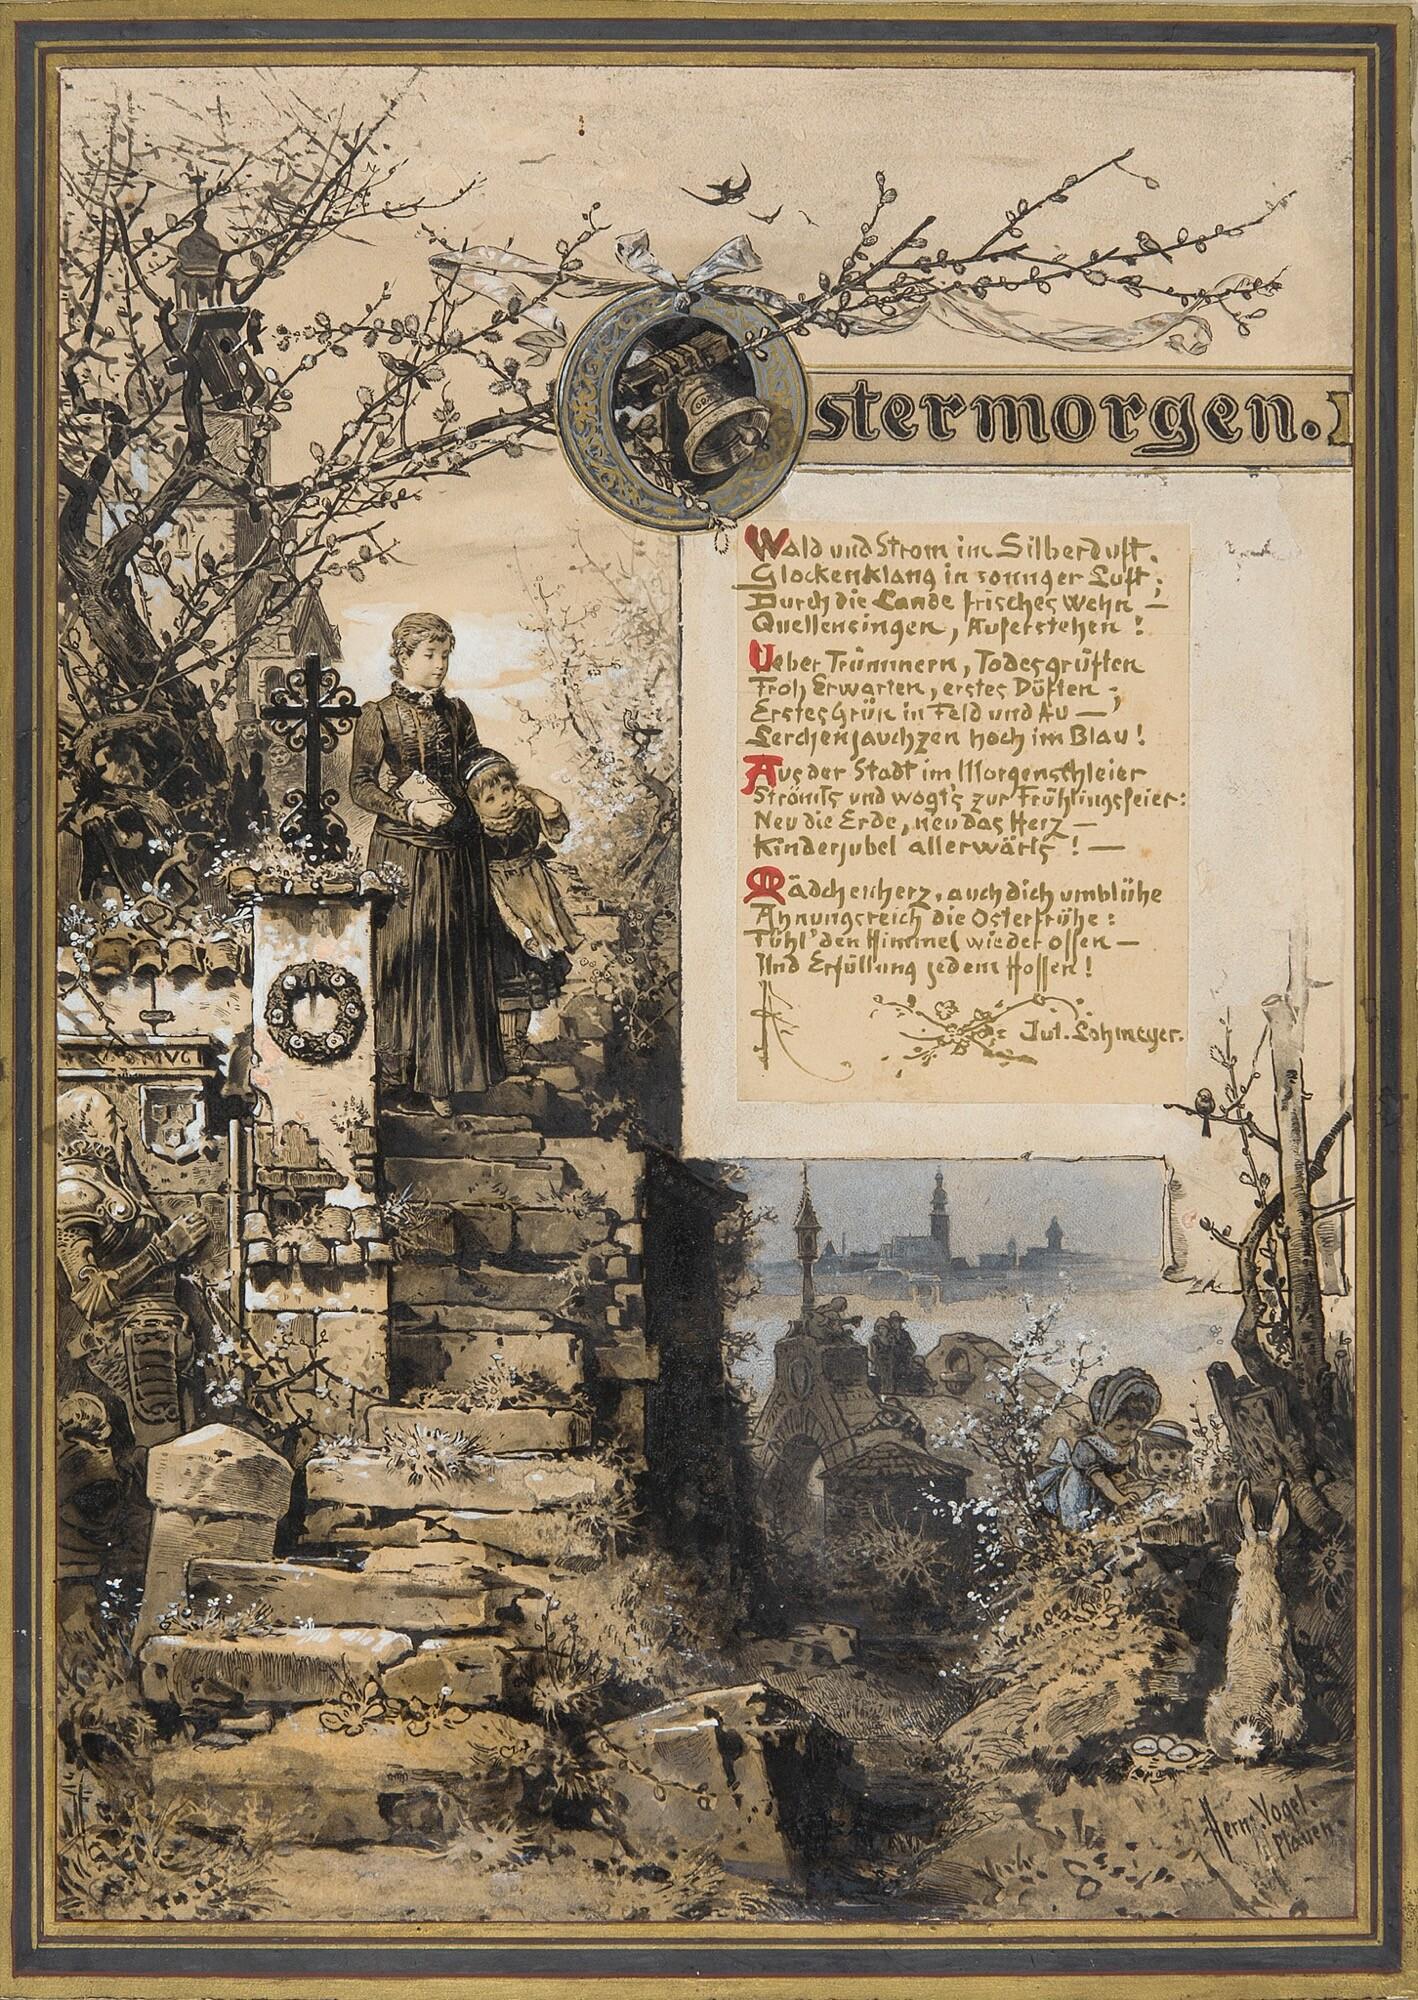 Ostermorgen.
Wald und Strom im Silberduft,
Glockenklang in sonniger Luft;
Durch die Lande frisches Wehn —
Quellensingen, Auferstehen!
Ueber Trümmern, Todesgrüften
Froh Erwarten, erstes Düften;
Erstes Grün in Feld und Au —
Lerchenjauchzen hoch im Blau!
Aus der Stadt im Morgenschleier
Strömt's und wogt's zur Frühlingsfeier:
Neu die Erde, neu das Herz —
Kinderjubel allerwärts! —
Mädchenherz, auch dich umblühe
Ahnungsreich die Osterfrühe:
Fühl' den Himmel wieder offen —
Und Erfüllung jedem Hoffen!
Jul. Lohmeyer.
Herm. Vogel.
Plauen